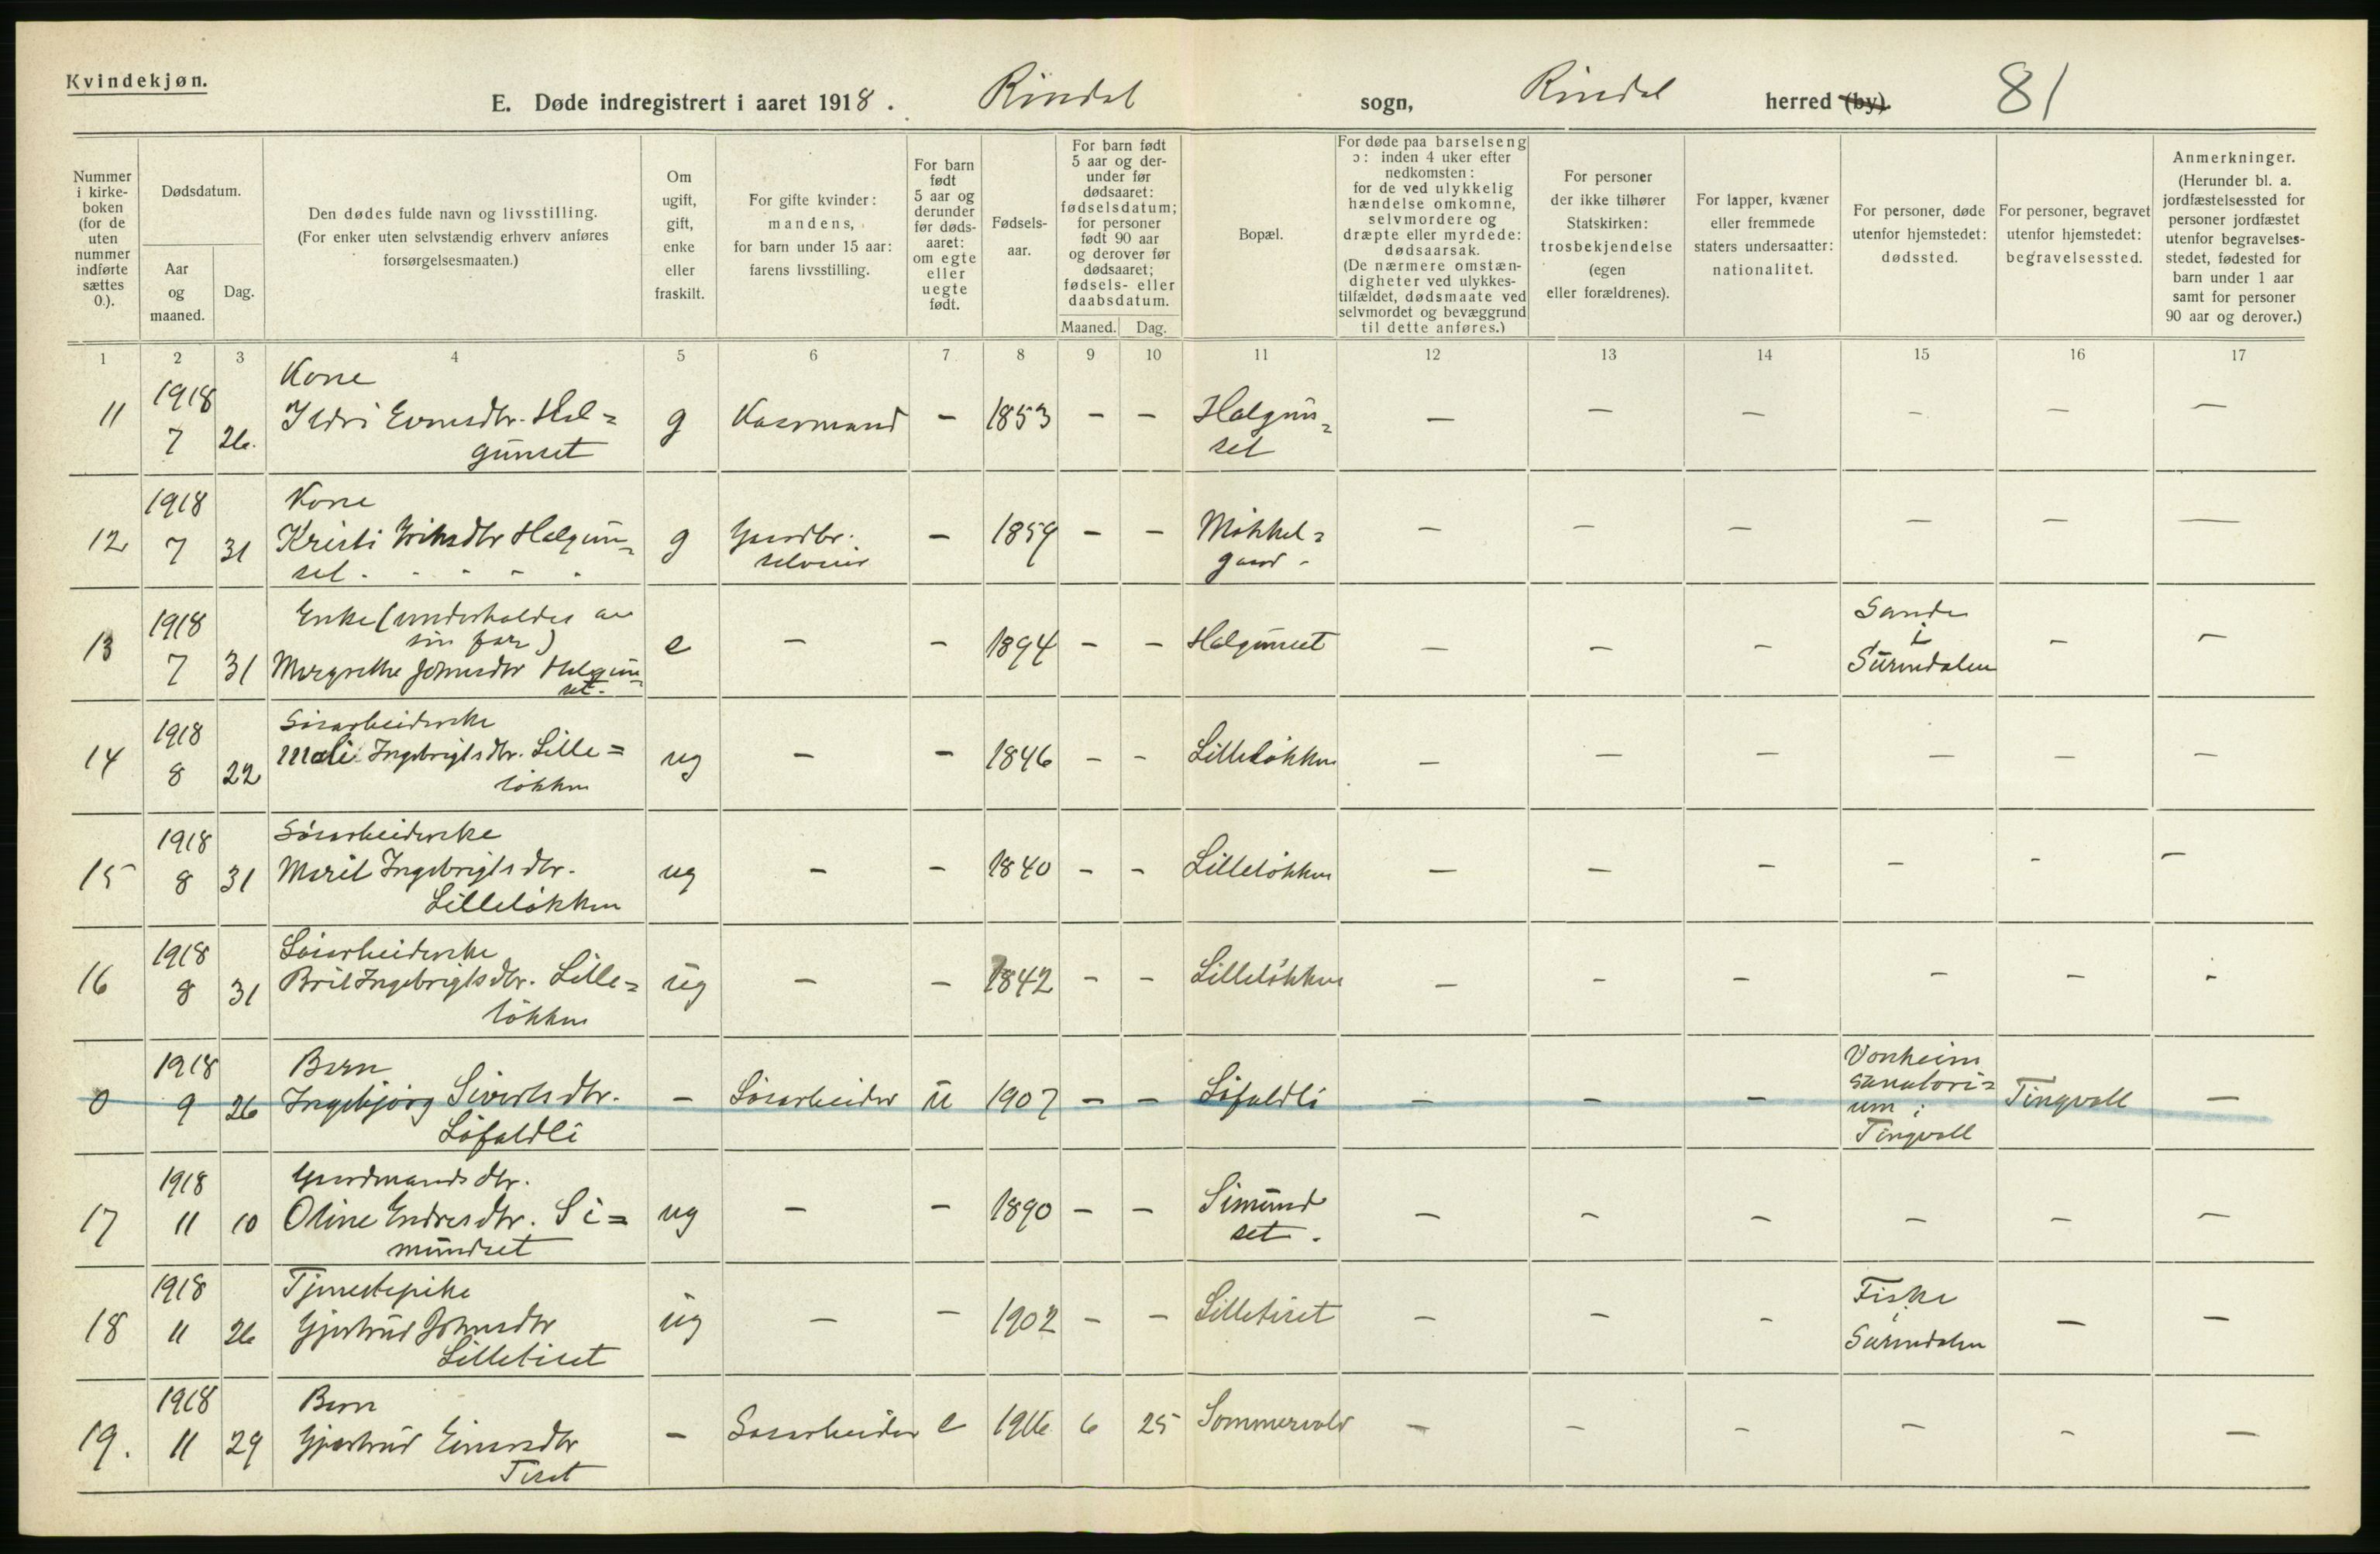 Kvindekjøn.
E. Døde indregistrert i aaret 1918. Rindal sogn, Rindal herred (by). 81
Nummer i kirke- boken (for de uten nummer indførte sættes 0.).
Dødsdatum.
Aar og maaned.
Dag.
Den dødes fulde navn og livsstilling.
(For enker uten selvstændig erhverv anføres forsørgelsesmaaten.)
Om ugift, gift, enke eller fraskilt.
For gifte kvinder: mandens, for barn under 15 aar: farens livsstilling.
For barn født 5 aar og derunder før døds- aaret: om egte eller uegte født.
Fødsels- aar.
For barn født 5 aar og der- under før dødsaaret: fødselsdatum; for personer født 90 aar og derover før dødsaaret; fødsels- eller daabsdatum.
Maaned. Dag.
Bopæl.
For døde paa barselseng ɔ: inden 4 uker efter nedkomsten: for de ved ulykkelig hændelse omkomne, selvmordere og dræpte eller myrdede: dødsaarsak.
(De nærmere omstæn- digheter ved ulykkes- tilfældet, dødsmaate ved selvmordet og bevæggrund til dette anføres.)
For personer der ikke tilhører Statskirken: trosbekjendelse (egen eller forældrenes).
For lapper, kvæner eller fremmede staters undersaatter: nationalitet.
For personer, døde utenfor hjemstedet: dødssted.
For personer, begravet utenfor hjemstedet: begravelsessted.
Anmerkninger.
(Herunder bl. a. jordfæstelsessted for personer jordfæstet utenfor begravelses- stedet, fødested for barn under 1 aar samt for personer 90 aar og derover.)
1 2 3 4 5 6 7 8 9 10 11 12 13 14 15 16 17
1918 Kone
11 7 26. Ildri Evensdtr. Hal= g Kaarmand - 1853 - - Halgun= - - - - - -
gunset set
1918 Kone
12 7 31 Kristi Eriksdtr Halgun= g Gaardbr. - 1859 - - Mikkel= - - - - - -
set. selveier gaard -
1918 Enke (underholdes av Sande
sin far) e - - 1894 - - Halgunset - - - i - -
13 7 31 Margrethe Johnsdtr Halgun= Surendalen
set.
1918 Løsarbeiderske
14 8 22 Mali Ingebrigtsdtr. Lille= ug - - 1846 - - Lilleløkken - - - - - -
løkken
1918 Løsarbeiderske
15 8 31 Marit Ingebrigtsdtr. ug - - 1840 - - Lilleløkken - - - - - -
Lilleløkken
1918 Løsarbeiderske
16 8 31 Brit Ingebrigtsdtr. Lille= ug - - 1842 - - Lilleløkken - - - - - -
løkken
1918 Barn Vonheim
0 9 26 Ingebjørg Sivertsdtr. - Løsarbeider u 1907 - - Løfaldli - - - sanatori= Tingvoll -
Løfaldli um i
Tingvoll
1918 Gaardmandsdtr.
17 11 10 Oline Endresdtr. Si= ug - - 1890 - - Simund - - - - - -
mundset set.
1918 Tjenestepike Fiske
18 11 26 Gjertrud Johnsdtr ug - - 1902 - - Lilletiset - - - i - -
Lilletiset Surendalen
1918 Barn
19. 11 29 Gjertrud Einarsdtr - Løsarbeider e 1916 6 25 Sommervold - - - - - -
Tiset